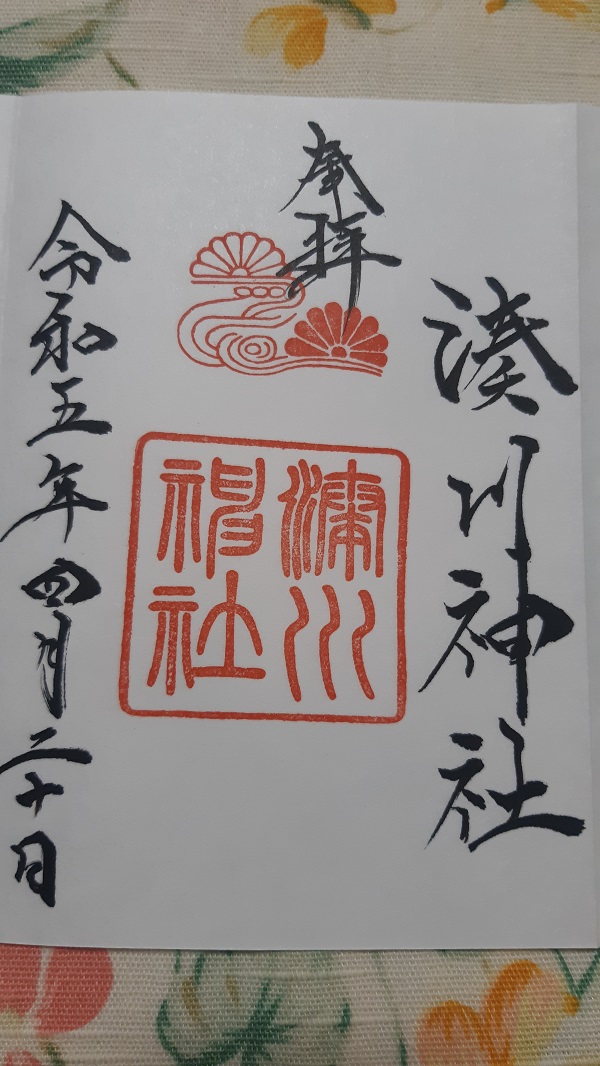 湊川神社
奉拝
湊川
神社
令和五年四月二十日